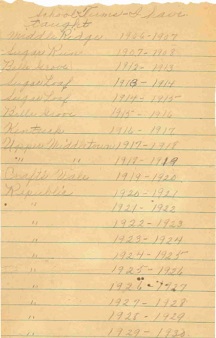 School Terms I have
taught
Middle Ridge 1906-1907
Sugar Run 1907-1908
1912-1913
Sugar Loaf 1913-1914
Sugar Loaf 1914-1915
Belle Grove 1915-1916
Kentuck 1916-1917
Upper Middletown 1917-1918
" " 1918-1919
Crafts Vale 1919-1920
Republic 1920-1921
" 1921-1922
" 1922-1923
" 1923-1924
" 1924-1925
" 1925-1926
" 1926-1927
" 1927-1928
" 1928-1929
" 1929-1930